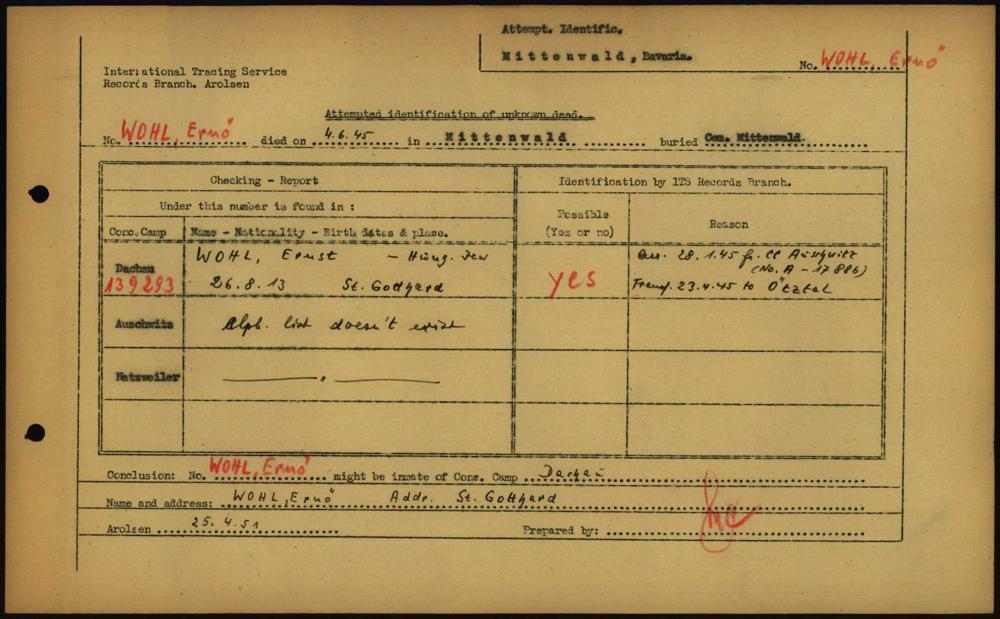 Attempt. Identific.
Mittenwald, Bavaria.
No. WOHL, Ernő
International Tracing Service
Records Branch. Arolsen
Attempted identification of unknown dead.
No. WOHL, Ernő died on 4.6.45 in Mittenwald buried Cem. Mittenwald.
Checking - Report
Identification by ITS Records Branch.
Under this number is found in :
Possible
(Yes or no)
Reason
Conc. Camp
Name - Nationality - Birth dates & place.
Dachau
139293
WOHL, Ernst - Hung. Jew
26.8.13 St. Godhard
yes
arr. 28.1.45 fr. CC Auschwitz
(No. A - 17886)
Transf. 23.4.45 to Ötztal
Auschwitz
Alph. list doesn't exist
Natzweiler
— " —
Conclusion: No. WOHL, Ernő might be inmate of Conc. Camp Dachau
Name and address: WOHL, Ernő Addr. St. Gotthard
Arolsen 25.4.51
Prepared by: